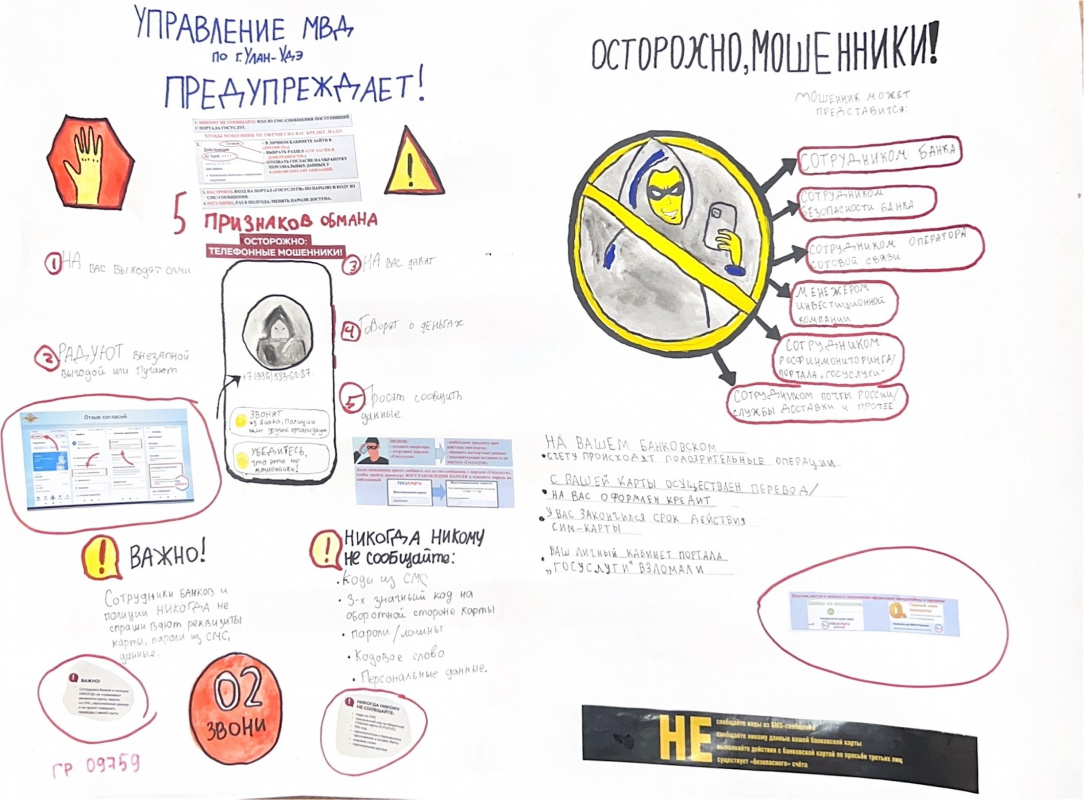 УПРАВЛЕНИЕ МВД
ПО Г.УЛАН-УДЭ
ПРЕДУПРЕЖДАЕТ!
1. НИКОМУ НЕ СООБЩАЙТЕ КОД ИЗ СМС-СООБЩЕНИЯ ПОСТУПИВШИЙ
С ПОРТАЛА ГОСУСЛУГ.
ЧТОБЫ МОШЕННИК НЕ ОФОРМИЛ НА ВАС КРЕДИТ, НАДО:
2.
Согласия
- В ЛИЧНОМ КАБИНЕТЕ ЗАЙТИ В
- ВЫБРАТЬ РАЗДЕЛ
- ОТОЗВАТЬ СОГЛАСИЕ НА ОБРАБОТКУ
ПЕРСОНАЛЬНЫХ ДАННЫХ У
БАНКОВСКИХ ОРГАНИЗАЦИЙ.
3. НАСТРОИТЬ ВХОД НА ПОРТАЛ «ГОСУСЛУГИ» ПО ПАРОЛЮ И КОДУ ИЗ
СМС-СООБЩЕНИЯ.
4. РЕГУЛЯРНО, РАЗ В ПОЛГОДА, МЕНЯТЬ ПАРОЛИ ДОСТУПА.
5 ПРИЗНАКОВ ОБМАНА
ОСТОРОЖНО:
ТЕЛЕФОННЫЕ МОШЕННИКИ!
1 НА ВАС ВЫХОДЯТ САМИ
2 РАДУЮТ ВНЕЗАПНОЙ
ВЫГОДОЙ ИЛИ ПУГАЮТ
3 НА ВАС ДАВЯТ
4 ГОВОРЯТ О ДЕНЬГАХ
5 ПРОСЯТ СООБЩИТЬ
ДАННЫЕ
ЗВОНЯТ
ИЗ БАНКА, ПОЛИЦИИ
ИЛИ ДРУГОЙ ОРГАНИЗАЦИИ
УБЕДИТЕСЬ,
ЧТО ЭТО НЕ
МОШЕННИКИ!
Отзыв согласий
ВАЖНО!
СОТРУДНИКИ БАНКОВ И
ПОЛИЦИИ НИКОГДА НЕ
СПРАШИВАЮТ РЕКВИЗИТЫ
КАРТЫ, ПАРОЛИ ИЗ СМС,
ДАННЫЕ.
НИКОГДА НИКОМУ
НЕ СООБЩАЙТЕ:
• КОДЫ ИЗ СМС
• 3-Х ЗНАЧНЫЙ КОД НА
ОБОРОТНОЙ СТОРОНЕ КАРТЫ
• ПАРОЛИ/ЛОГИНЫ
• КОДОВОЕ СЛОВО
• ПЕРСОНАЛЬНЫЕ ДАННЫЕ.
ВАЖНО!
02
ЗВОНИ
НИКОГДА НИКОМУ
НЕ СООБЩАЙТЕ:
ГР 09759
ОСТОРОЖНО, МОШЕННИКИ!
МОШЕННИК МОЖЕТ
ПРЕДСТАВИТСЯ:
СОТРУДНИКОМ БАНКА
СОТРУДНИКОМ
БЕЗОПАСНОСТИ БАНКА
СОТРУДНИКОМ ОПЕРАТОРА
СОТОВОЙ СВЯЗИ
МЕНЕДЖЕРОМ
ИНВЕСТИЦИОННОЙ
КОМПАНИИ
СОТРУДНИКОМ
РОСФИНМОНИТОРИНГА/
ПОРТАЛА „ГОСУСЛУГИ"
СОТРУДНИКОМ ПОЧТЫ РОССИИ/
СЛУЖБЫ ДОСТАВКИ И ПРОЧЕЕ
НА ВАШЕМ БАНКОВСКОМ
• СЧЕТУ ПРОИСХОДЯТ ПОДОЗРИТЕЛЬНЫЕ ОПЕРАЦИИ
С ВАШЕЙ КАРТЫ ОСУЩЕСТВЛЕН ПЕРЕВОД/
• НА ВАС ОФОРМЛЕН КРЕДИТ
• У ВАС ЗАКОНЧИЛСЯ СРОК ДЕЙСТВИЯ
СИМ-КАРТЫ
• ВАШ ЛИЧНЫЙ КАБИНЕТ ПОРТАЛА
„ГОСУСЛУГИ" ВЗЛОМАЛИ
НЕ
сообщайте коды из SMS-сообщений
сообщайте никому данные вашей банковской карты
выполняйте действия с банковской картой по просьбе третьих лиц
существует «безопасного» счёта